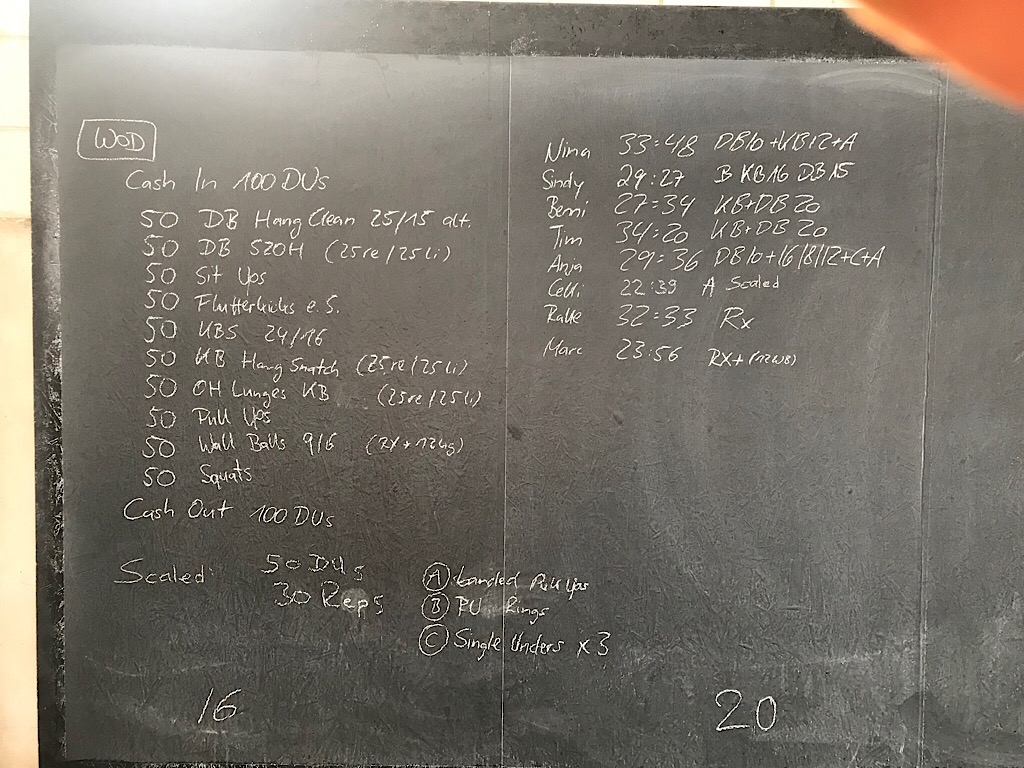 WOD
Cash In 100 DUs
50 DB Hang Clean 25/15 alt.
50 DB S2OH (25re/25li)
50 Sit Ups
50 Flutterkicks e.S.
50 KBS 24/16
50 KB Hang Snatch (25re/25li)
50 OH Lunges KB (25re/25li)
50 Pull Ups
50 Wall Balls 9/6 (RX+12kg)
50 Squats
Cash Out 100 DUs
Scaled: 50 DUs
30 Reps
A banded Pull Ups
B PU Rings
C Single Unders x 3
16
Nina 33:48 DB10+KB12+A
Sindy 29:27 B KB16 DB15
Benni 27:34 KB+DB 20
Tim 34:20 KB+DB 20
Anja 29:36 DB10+16/8/12+C+A
22:39 A Scaled
32:33 Rx
Marc 23:56 RX+ (12WB)
20